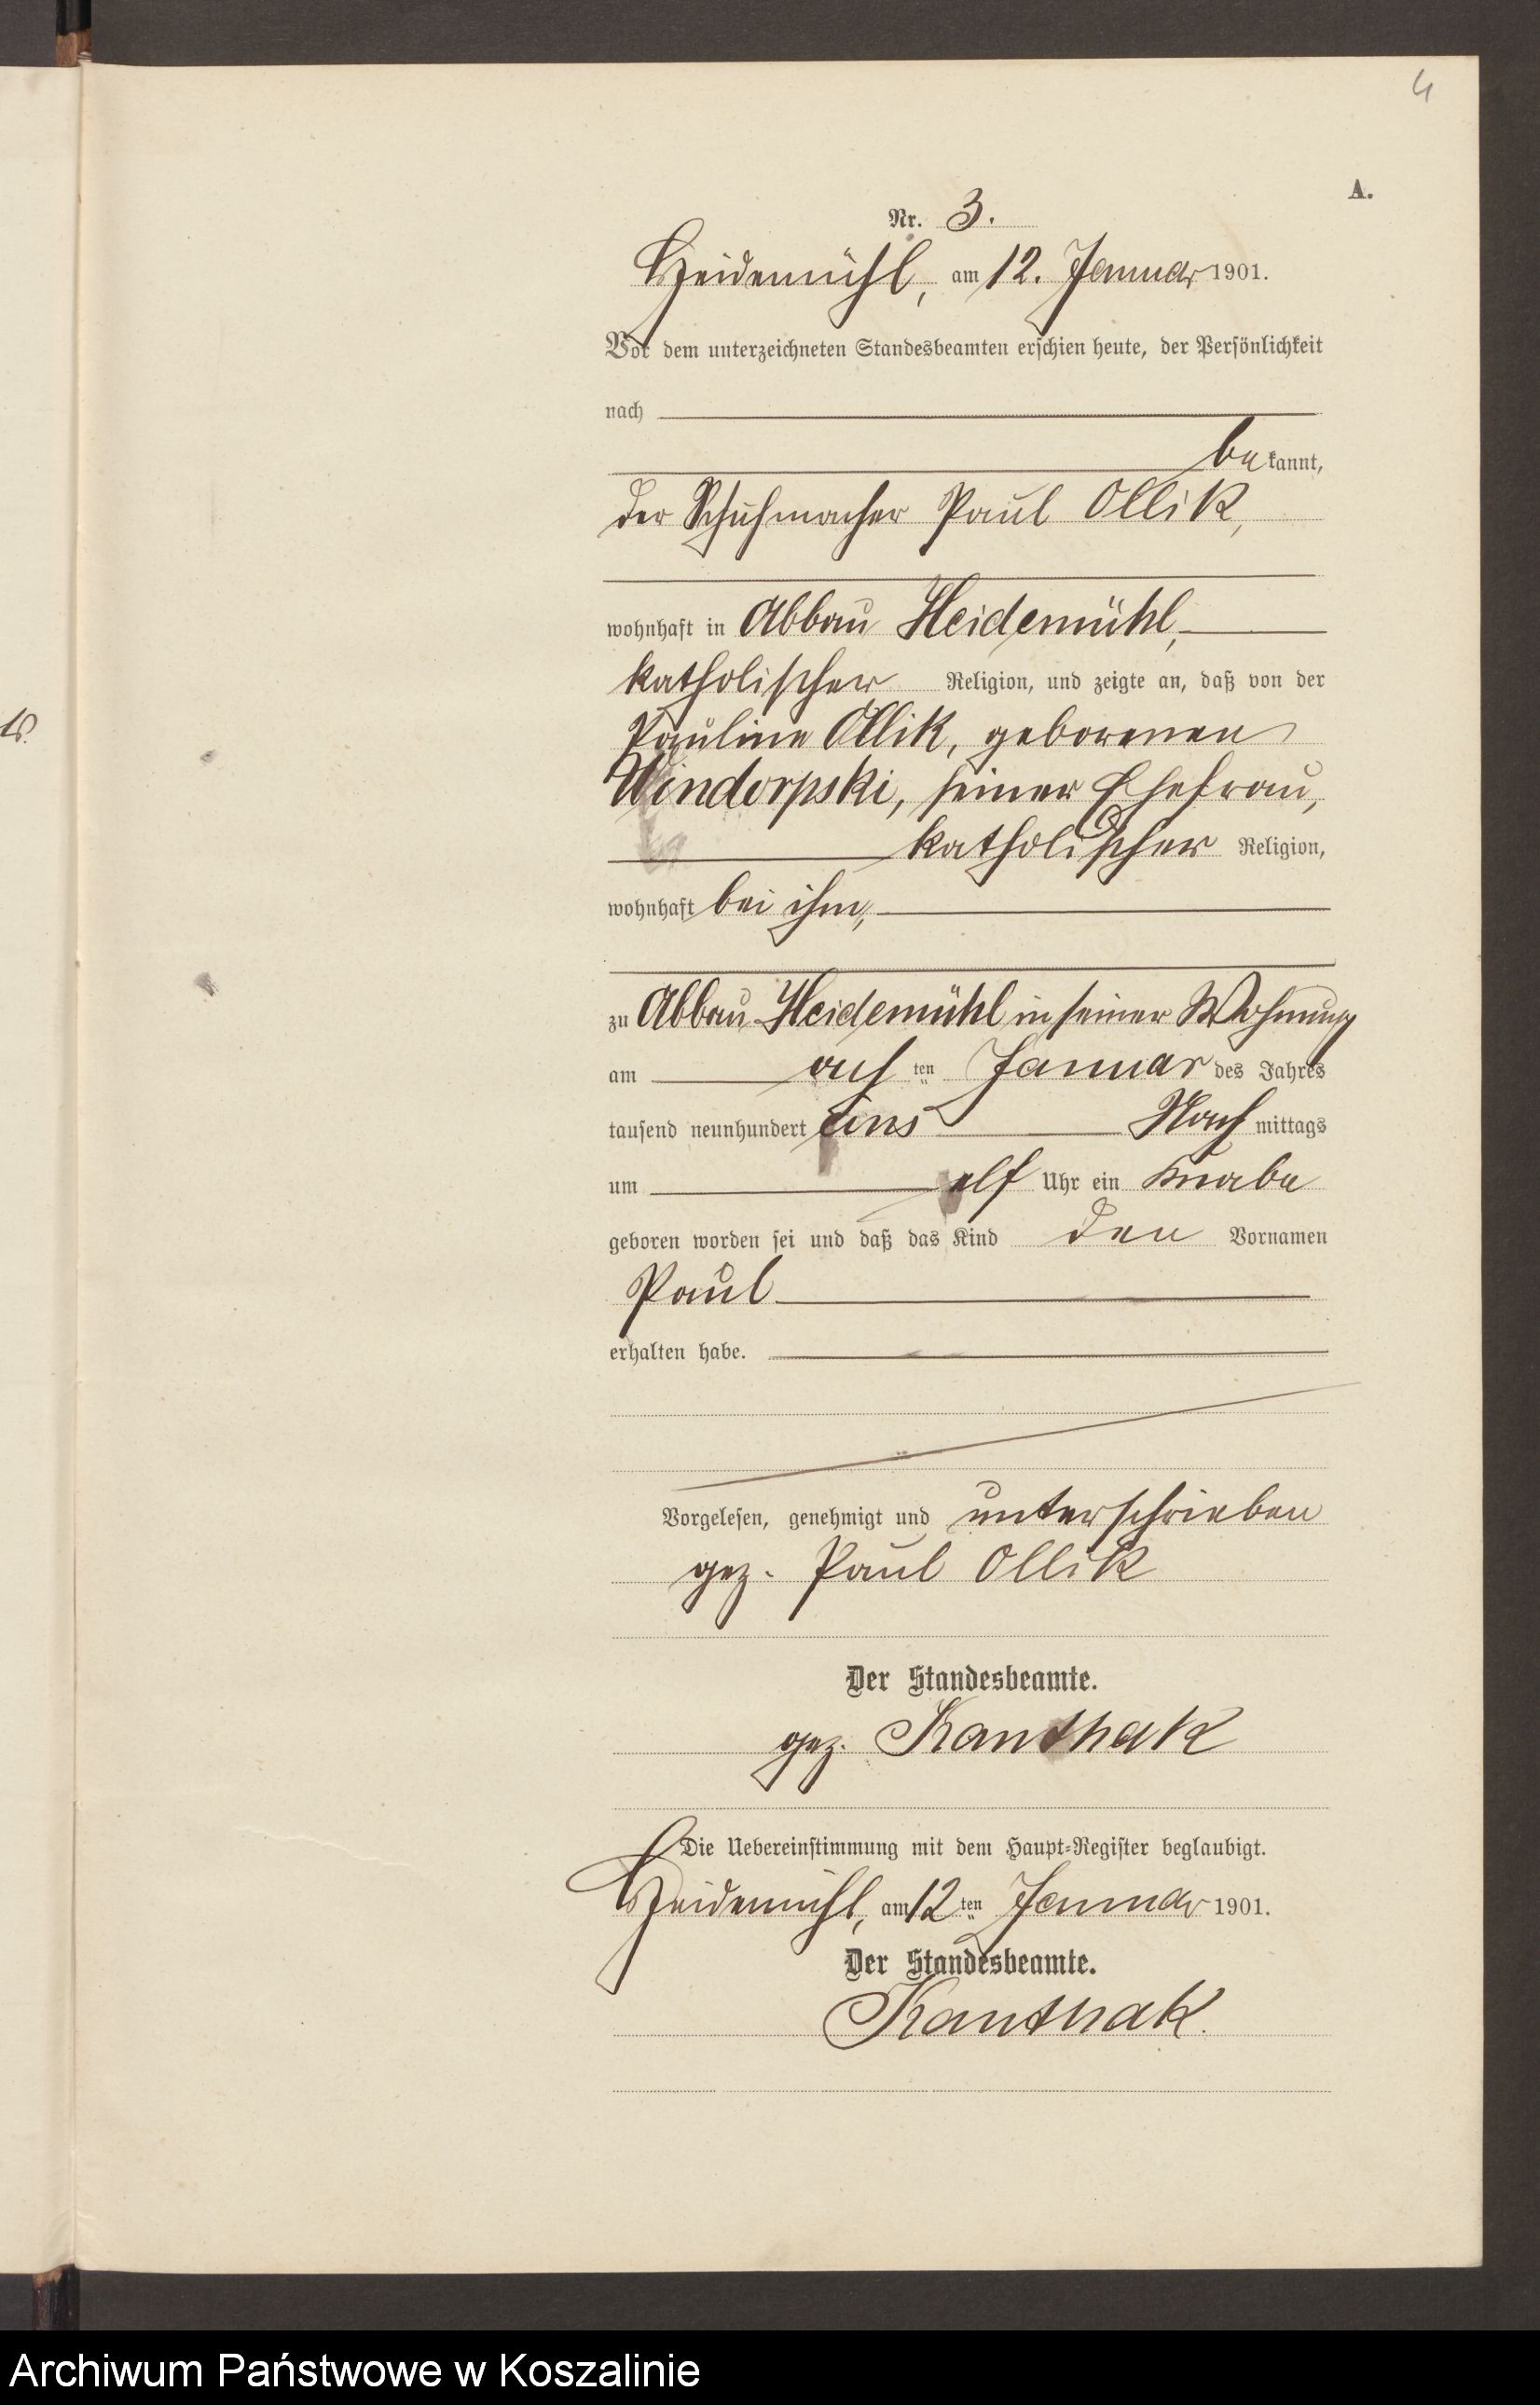 4
A.
Nr. 3.
Heidemühl, am 12. Januar 1901.
Vor dem unterzeichneten Standesbeamten erschien heute, der Persönlichkeit
nach
bekannt,
der Schuhmacher Paul Ollik,
wohnhaft in Abbau Heidemühl,
katholischer Religion, und zeigte an, daß von der
Pauline Ollik, geborenen
Windorpski, seiner Ehefrau,
katholischer Religion,
wohnhaft bei ihm,
zu Abbau Heidemühl in seiner Wohnung
am ach ten Januar des Jahres
tausend neunhundert eins Nach mittags
um elf Uhr ein Knabe
geboren worden sei und daß das Kind den Vornamen
Paul
erhalten habe.
Vorgelesen, genehmigt und unterschrieben
gez. Paul Ollik
Der Standesbeamte.
gez. Kanthak
Die Uebereinstimmung mit dem Haupt-Register beglaubigt.
Heidemühl, am 12 ten Januar 1901.
Der Standesbeamte.
Kanthak.
Archiwum Państwowe w Koszalinie